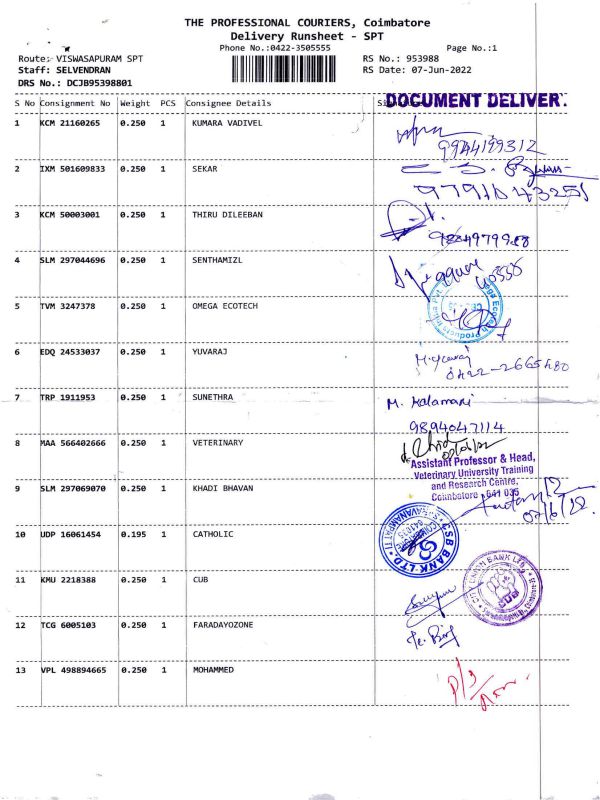 THE PROFESSIONAL COURIERS, Coimbatore
Delivery Runsheet - SPT
Phone No.:0422-3505555 Page No.:1
Route: VISWASAPURAM SPT RS No.: 953988
Staff: SELVENDRAN RS Date: 07-Jun-2022
DRS No.: DCJB95398801
S No Consignment No Weight PCS Consignee Details
DOCUMENT DELIVER.
1 KCM 21160265 0.250 1 KUMARA VADIVEL
9944199312
2 IXM 501609833 0.250 1 SEKAR
9791043251
3 KCM 50003001 0.250 1 THIRU DILEEBAN
4 SLM 297044696 0.250 1 SENTHAMIZL
5 TVM 3247378 0.250 1 OMEGA ECOTECH
6 EDQ 24533037 0.250 1 YUVARAJ
0422-2665480
7 TRP 1911953 0.250 1 SUNETHRA M. Kalamani
9894047114
8 MAA 566402666 0.250 1 VETERINARY
Assistant Professor & Head,
Veterinary University Training
and Research Centre.
Coimbatore - 641 035
9 SLM 297069070 0.250 1 KHADI BHAVAN
07/6/22
10 UDP 16061454 0.195 1 CATHOLIC
CSB BANK LTD
COIMBATORE
11 KMU 2218388 0.250 1 CUB
CITY UNION BANK LTD
CUB
12 TCG 6005103 0.250 1 FARADAYOZONE
13 VPL 498894665 0.250 1 MOHAMMED